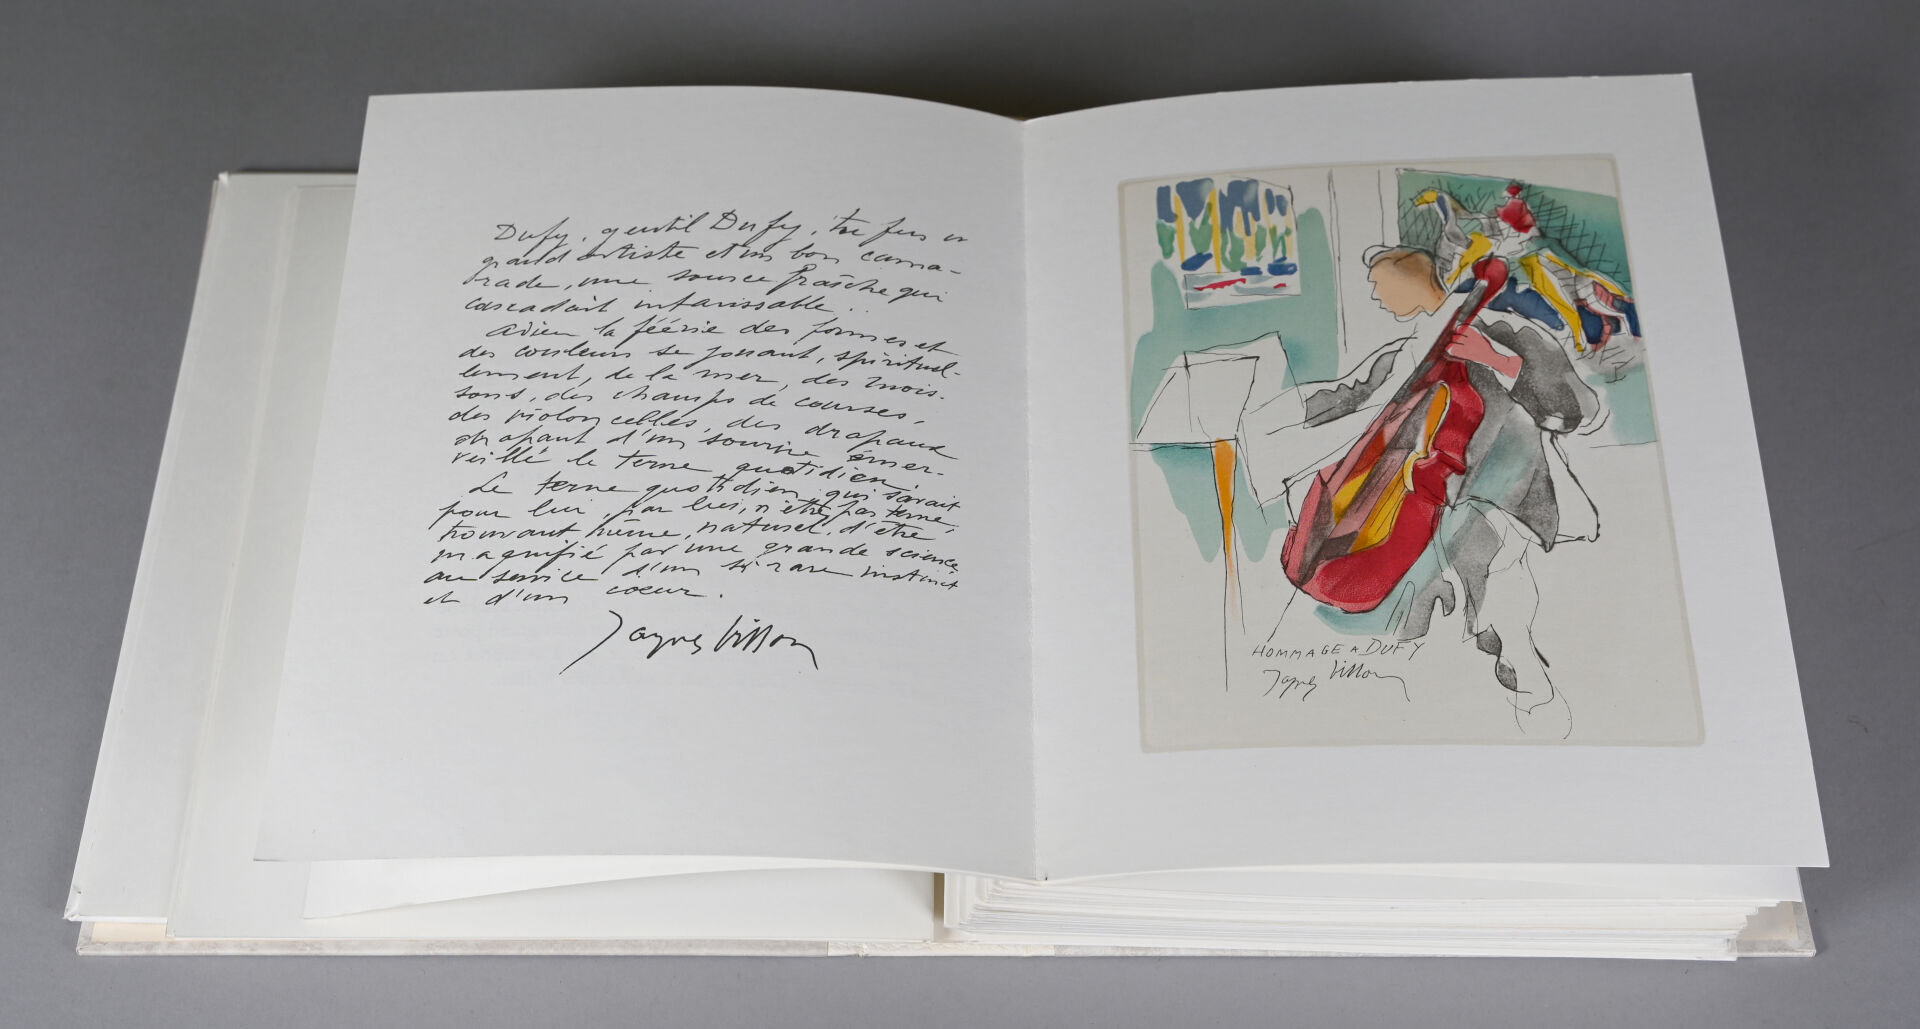 Dufy, gentil Dufy, tu fus un
grand artiste et un bon cama-
rade, une source fraîche qui
cascadait intarissable..
Adieu la féérie des formes et
des couleurs se jouant, spirituel-
lement, de la mer, des mois-
sons, des champs de courses,
des violoncelles, des drapeaux
drapant d'un sourire émer-
veillé le terne quotidien.
Le terne quotidien qui savait
pour lui, par lui, n'être pas terne,
trouvant même, naturel, d'être
magnifié par une grande science,
au service d'un si rare instinct
et d'un coeur.
Jacques Villon
HOMMAGE A DUFY
Jacques Villon